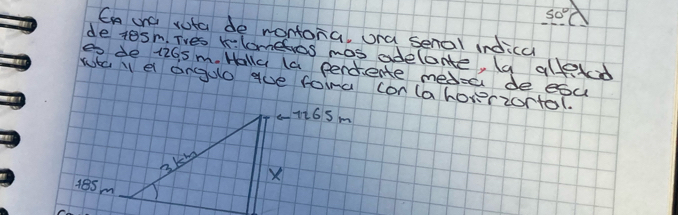 50°
En una ruta de montaña, una señal indica
de 785m. Tres kilometros mas adelante, la altetud
es de 1265 m. Halla la pendiente media de esa
ruta y el angulo que forma con la horizontal.
←1265 m
3 km
785 m
X